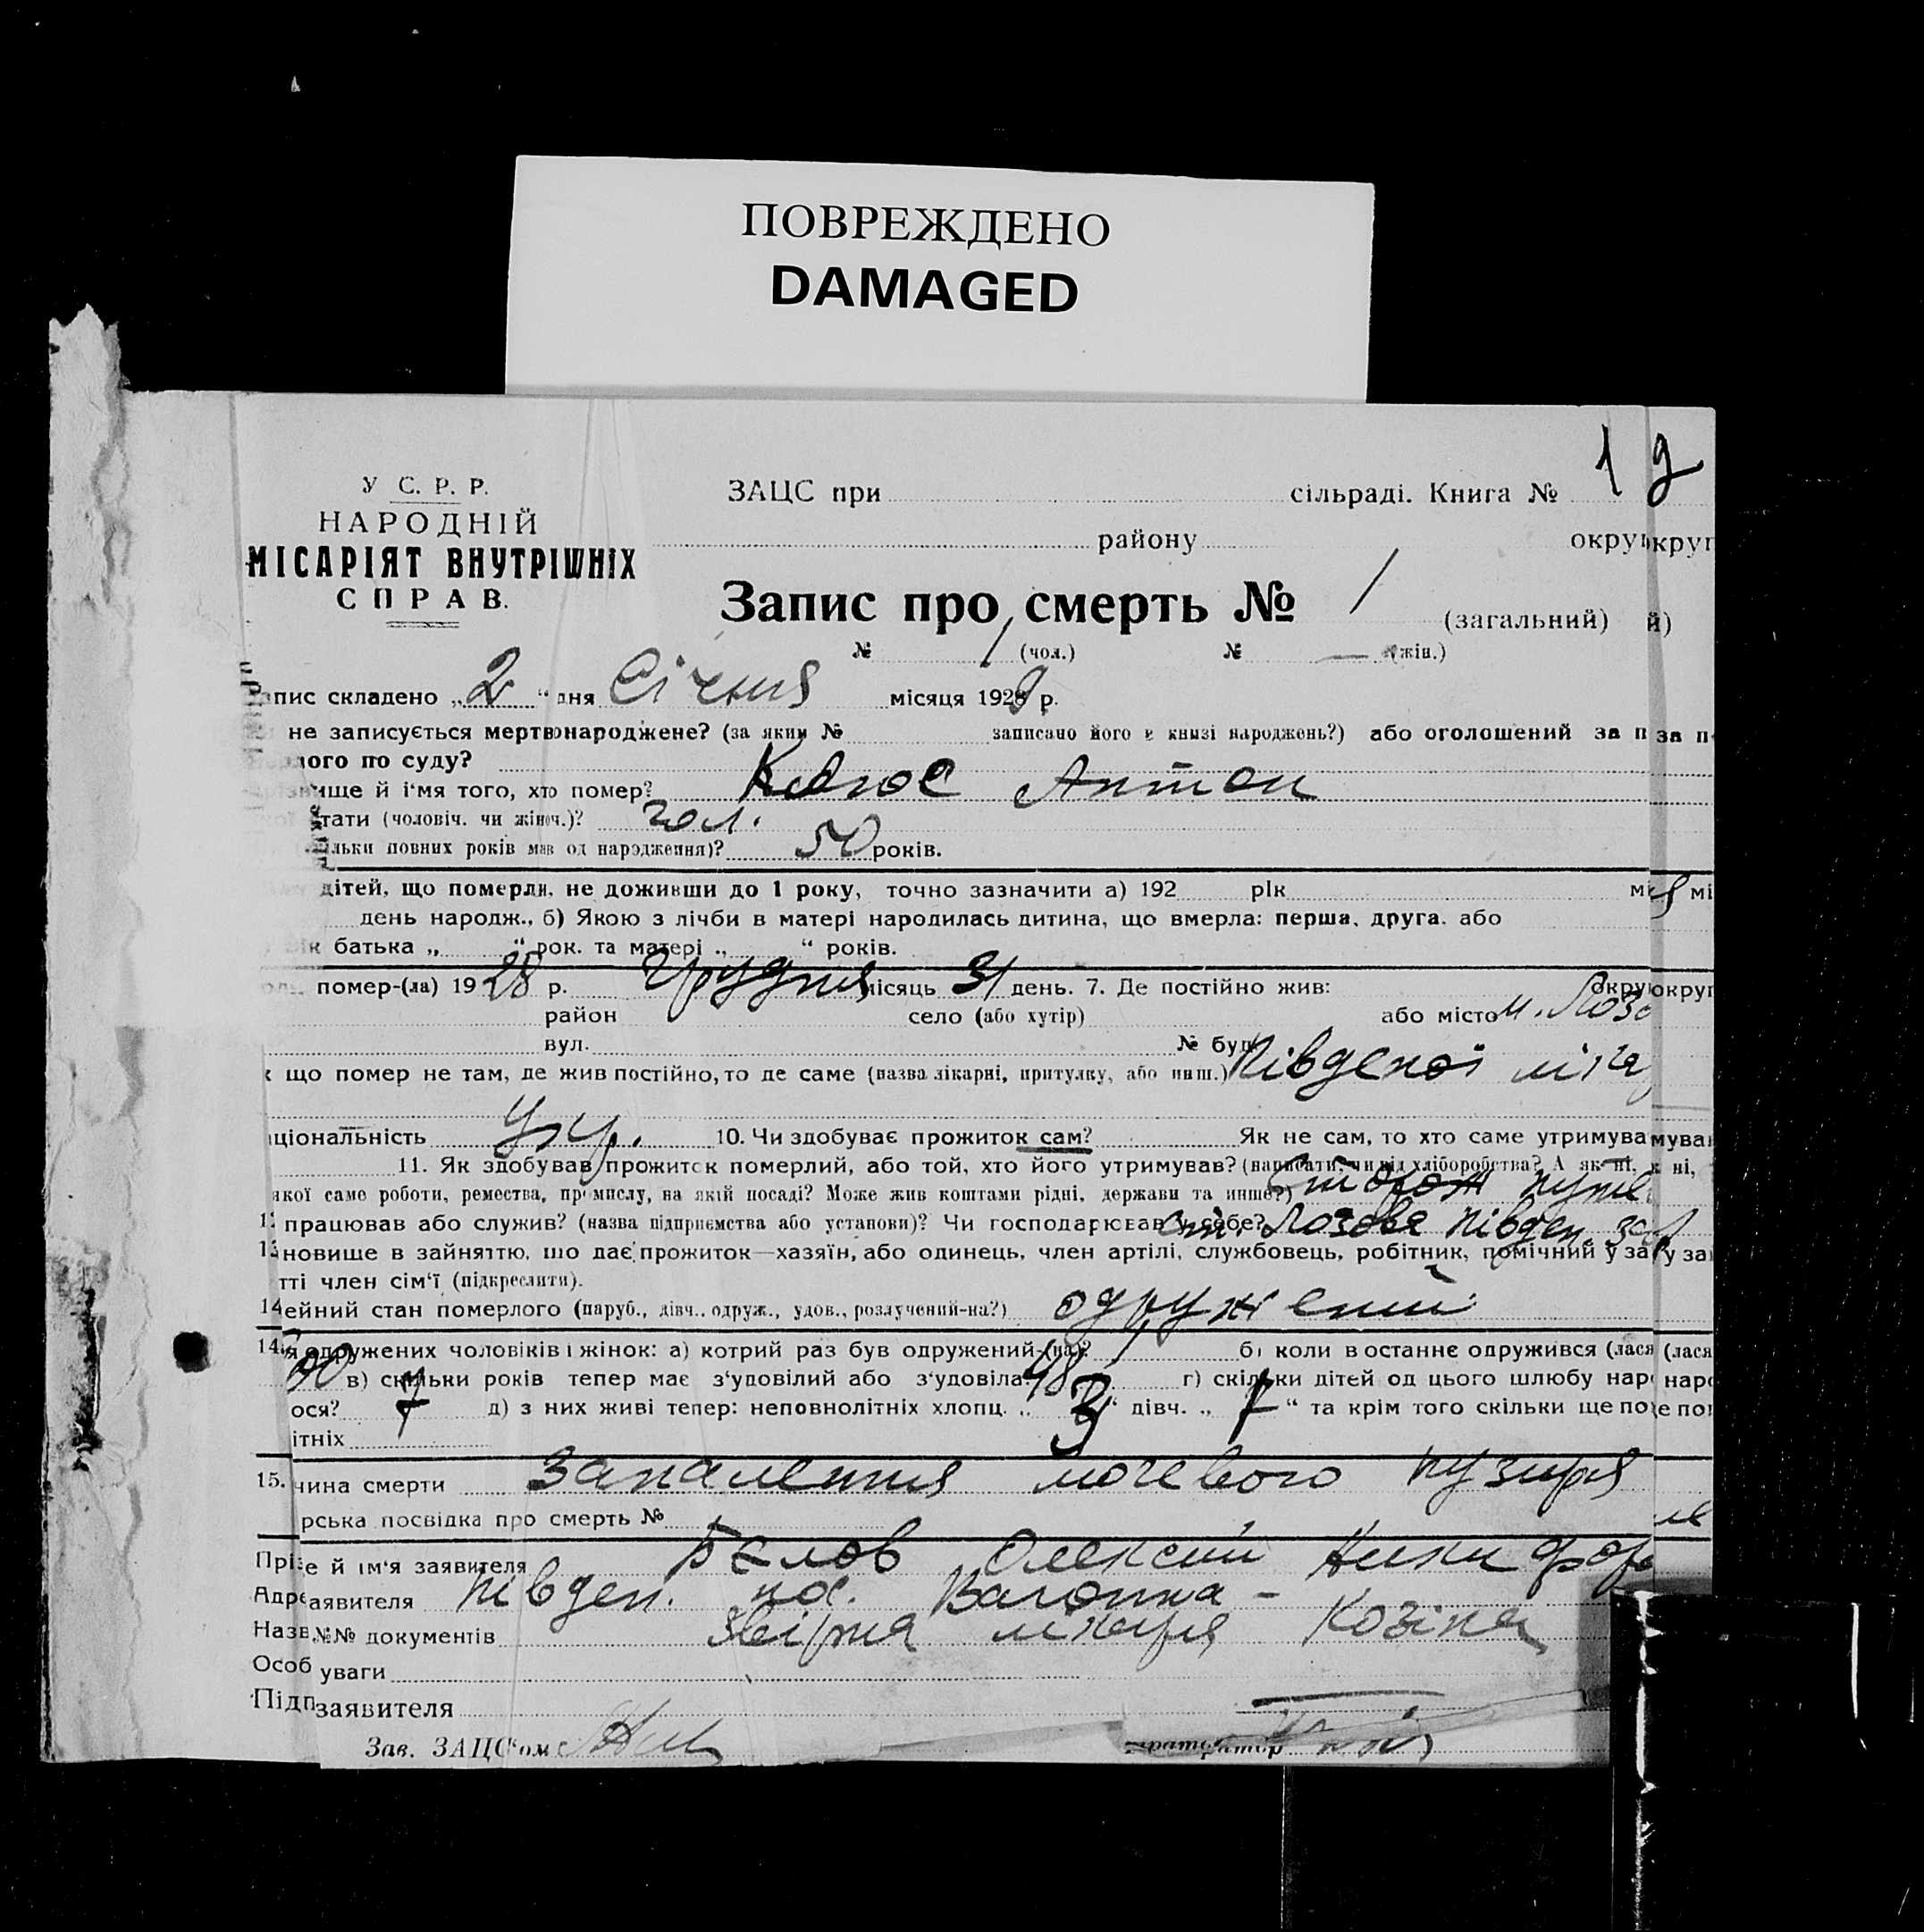 ПОВРЕЖДЕНО
DAMAGED
1 9
У С. Р. Р.
НАРОДНІЙ
МІСАРІЯТ ВНУТРІШНІХ
СПРАВ.
ЗАЦС при сільраді. Книга №
району окру круг
Запис про смерть № 1 (загальний) й)
№ 1 (чол.) № — (жін.)
апис складено „2“ дня Січня місяця 1929 р.
не записується мертвонароджене? (за яким № записано його в книзі народжень?) або оголошений за п за п
лого по суду?
вище й і'мя того, хто помер? Антон
тати (чоловіч. чи жіноч.)? чол.
льки повних років мав од народження)? 50 років.
дітей, що померли, не доживши до 1 року, точно зазначити а) 192 рік мі мі
день народж., б) Якою з лічби в матері народилась дитина, що вмерла: перша, друга. або
ік батька „ “ рок. та матері „ “ років.
помер-(ла) 1928 р. Грудня місяць 31 день. 7. Де постійно жив: окру округ
район село (або хутір) або місто м. Лозо
вул. № буд.
к що помер не там, де жив постійно, то де саме (назва лікарні, притулку, або инш.) Південої ліка
ціональність Укр. 10. Чи здобуває прожиток сам? Як не сам, то хто саме утримува мував
11. Як здобував прожиток померлий, або той, хто його утримував? (написати, чи від хліборобства? А як ні, к ні,
якої саме роботи, ремества, промислу, на якій посаді? Може жив коштами рідні, держави та инше?) Сторож путе
12 працював або служив? (назва підприємства або установи)? Чи господарював у себе? ст. Лозова Півден. зал
13 новище в зайняттю, що дає прожиток—хазяїн, або одинець, член артілі, службовець, робітник, помічний у за у за
тті член сім'ї (підкреслити).
14 ейний стан померлого (паруб., дівч., одруж., удов., розлучений-на?) одружений
14 я одружених чоловіків і жінок: а) котрий раз був одружений-(на)? 1 б) коли востаннє одружився (лася (лася
00 в) скільки років тепер має з'удовілий або з'удовіла 48 г) скільки дітей од цього шлюбу наро наро
ося? 7 д) з них живі тепер: неповнолітніх хлопц. „3“ дівч. „ “ та крім того скільки ще по е по
ітніх
15. чина смерти Запалення мочевого пузиря
рська посвідка про смерть №
Пріз е й ім'я заявителя Бєлов Олексій Никифор
Адре аявителя Півден. пос. Вагонна -
Назв №№ документів Звірка лікаря Козіна
Особ уваги
Підп заявителя
Зав. ЗАЦС'ом